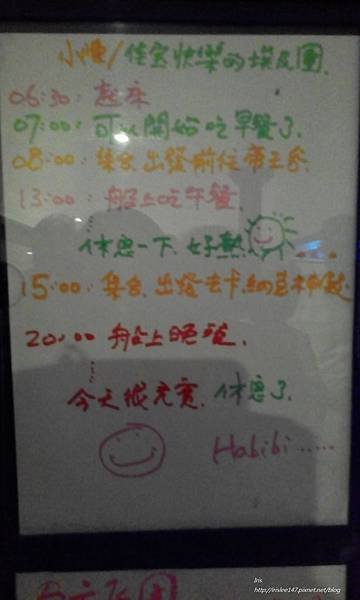 小陳/佳宸快樂的埃及團.
06:30: 起床
07:00: 可以開始吃早餐了.
08:00: 集合.出發前往帝王谷.
13:00: 船上吃午餐.
休息一下.好熱
15:00: 集合.出發去卡納克神殿.
20:00 船上晚餐.
今天很充實.休息了.
Habibi.....
Iris
http://irislee147.pixnet.net/blog